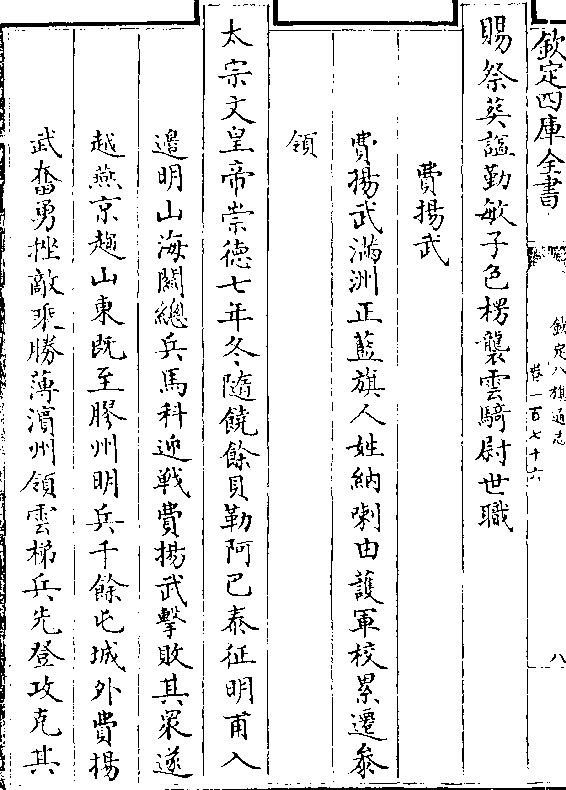 欽定四庫全書
欽定八旗通志
卷一百七十六
八
賜祭葬諡勤敏子色楞襲雲騎尉世職
費揚武
費揚武滿洲正藍旗人姓納喇由護軍校累遷叅
領
太宗文皇帝崇德七年冬隨饒餘貝勒阿巴泰征明甫入
邊明山海關總兵馬科迎戰費揚武擊敗其眾遂
越燕京趨山東既至膠州明兵千餘屯城外費揚
武奮勇挫敵乘勝薄濱州領雲梯兵先登攻克其